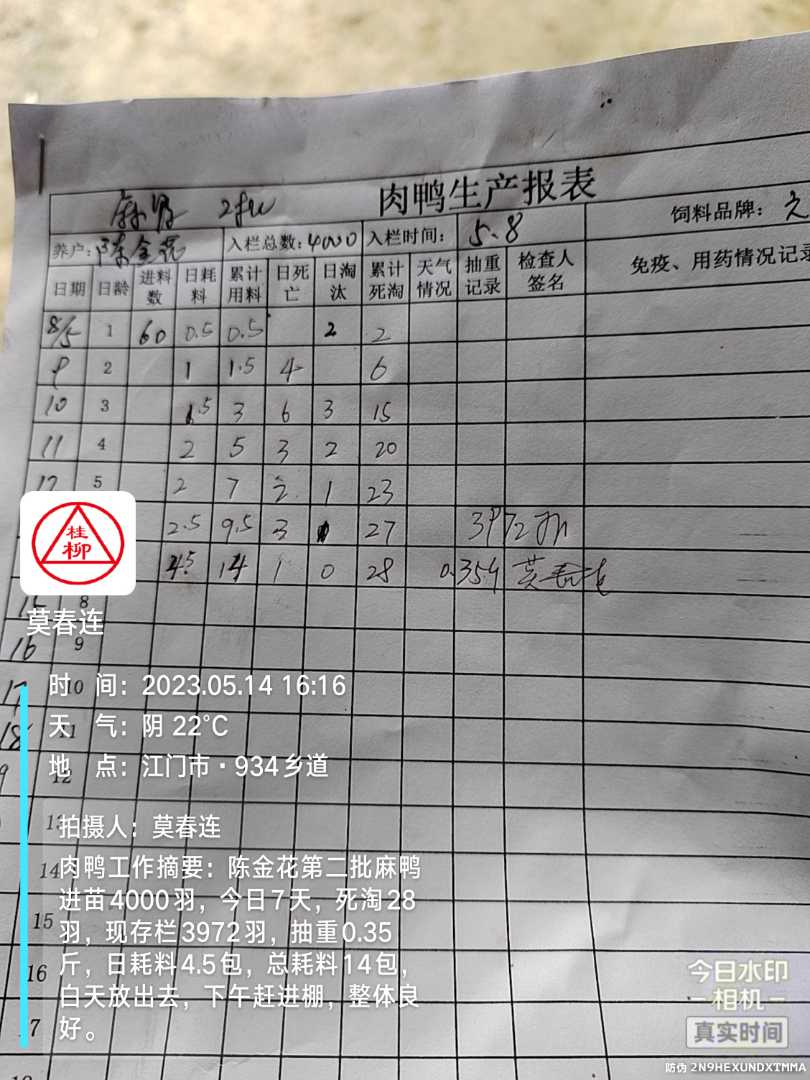 肉鸭生产报表
麻鸭 2批
养户: 陈金花 入栏总数: 4000 入栏时间: 5.8 饲料品牌:
日期 日龄 进料数 日耗料 累计用料 日死亡 日淘汰 累计死淘 天气情况 抽重记录 检查人签名 免疫、用药情况记录
8/5 1 60 0.5 0.5 2 2
9 2 1 1.5 4 6
10 3 1.5 3 6 3 15
11 4 2 5 3 2 20
12 5 2 7 2 1 23
2.5 9.5 3 27 3972羽
4.5 14 1 0 28 0.35斤 莫春连
桂柳
15 8
莫春连
16 9
17 10
时 间: 2023.05.14 16:16
18
天 气: 阴 22℃
12
地 点: 江门市·934乡道
拍摄人: 莫春连
肉鸭工作摘要: 陈金花第二批麻鸭
14
进苗4000羽, 今日7天, 死淘28
15
羽, 现存栏3972羽, 抽重0.35
16
斤, 日耗料4.5包, 总耗料14包,
白天放出去, 下午赶进棚, 整体良
好。
今日水印
相机
真实时间
防伪 2N9HEXUNDXTMMA